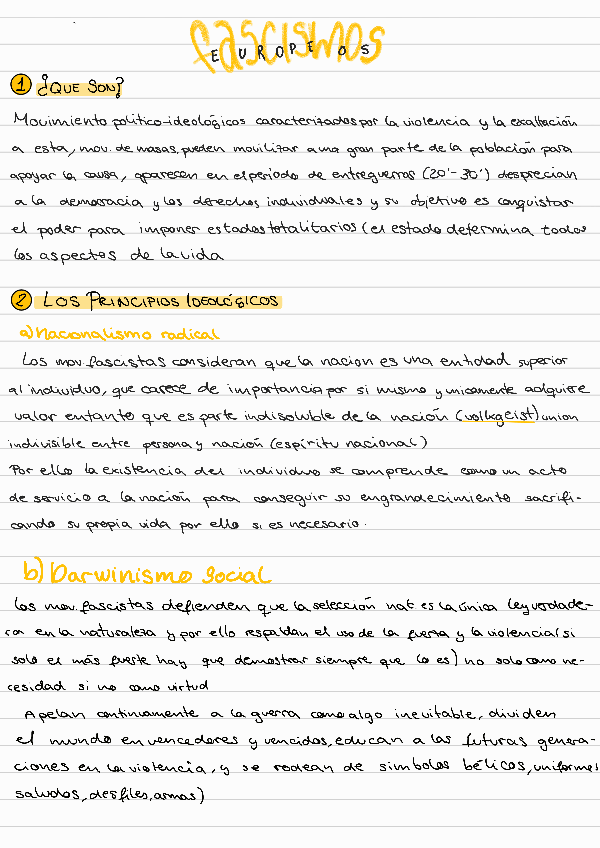 fascismos
EUROPEOS
1 ¿QUE SON?
Movimiento politico-ideológicos caracterizados por la violencia y la exaltación
a esta, mov. de masas, pueden movilizar a una gran parte de la población para
apoyar la causa, aparecen en el periodo de entreguerras (20'-30') desprecian
a la democracia y los derechos individuales y su objetivo es conquistar
el poder para imponer estados totalitarios (el estado determina todos
los aspectos de la vida
2 LOS PRINCIPIOS IDEOLÓGICOS
a) Nacionalismo radical
Los mov. fascistas consideran que la nacion es una entidad superior
al individuo, que carece de importancia por si mismo y unicamente adquiere
valor entanto que es parte indisoluble de la nación (volkgeist) union
indivisible entre persona y nación (espíritu nacional)
Por ello la existencia del individuo se comprende como un acto
de servicio a la nación para conseguir su engrandecimiento sacrifi-
cando su propia vida por ello si es necesario.
b) Darwinismo social
Los mov. fascistas defienden que la selección nat. es la única ley verdade-
ra en la naturaleza y por ello respaldan el uso de la fuerza y la violencia (si
solo el más fuerte hay que demostrar siempre que lo es) no solo como ne-
cesidad si no como virtud
Apelan continuamente a la guerra como algo inevitable, dividen
el mundo en vencedores y vencidos, educan a las futuras genera-
ciones en la violencia, y se rodean de simbolos bélicos, uniformes
saludos, desfiles, armas)